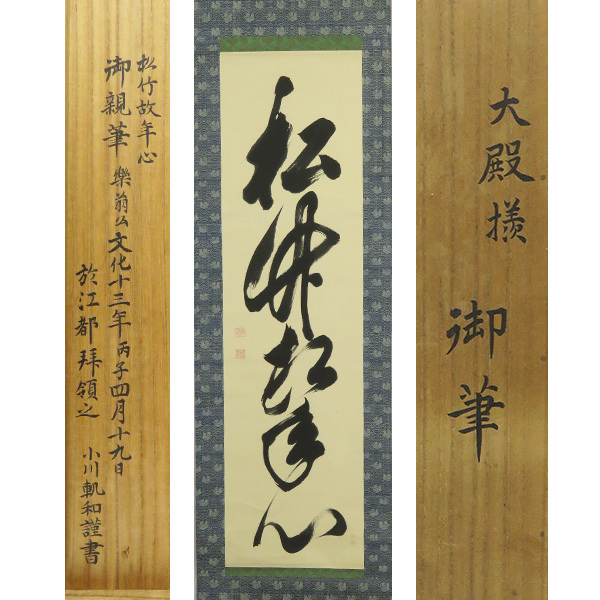 大殿様
御筆
松竹故年心
松竹故年心
御親筆
樂翁公文化十三年丙子四月十九日
於江都拜領之
小川軌和謹書